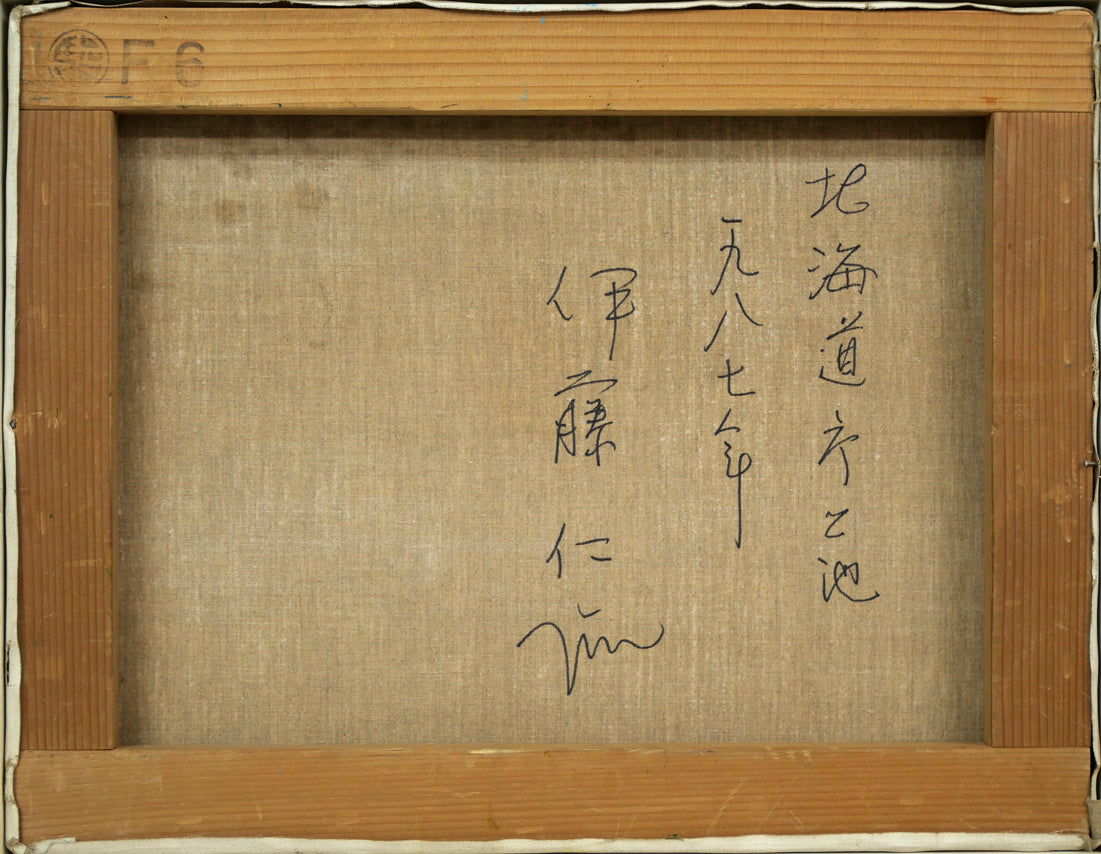 F6
北海道 池
一九八七年
伊藤仁